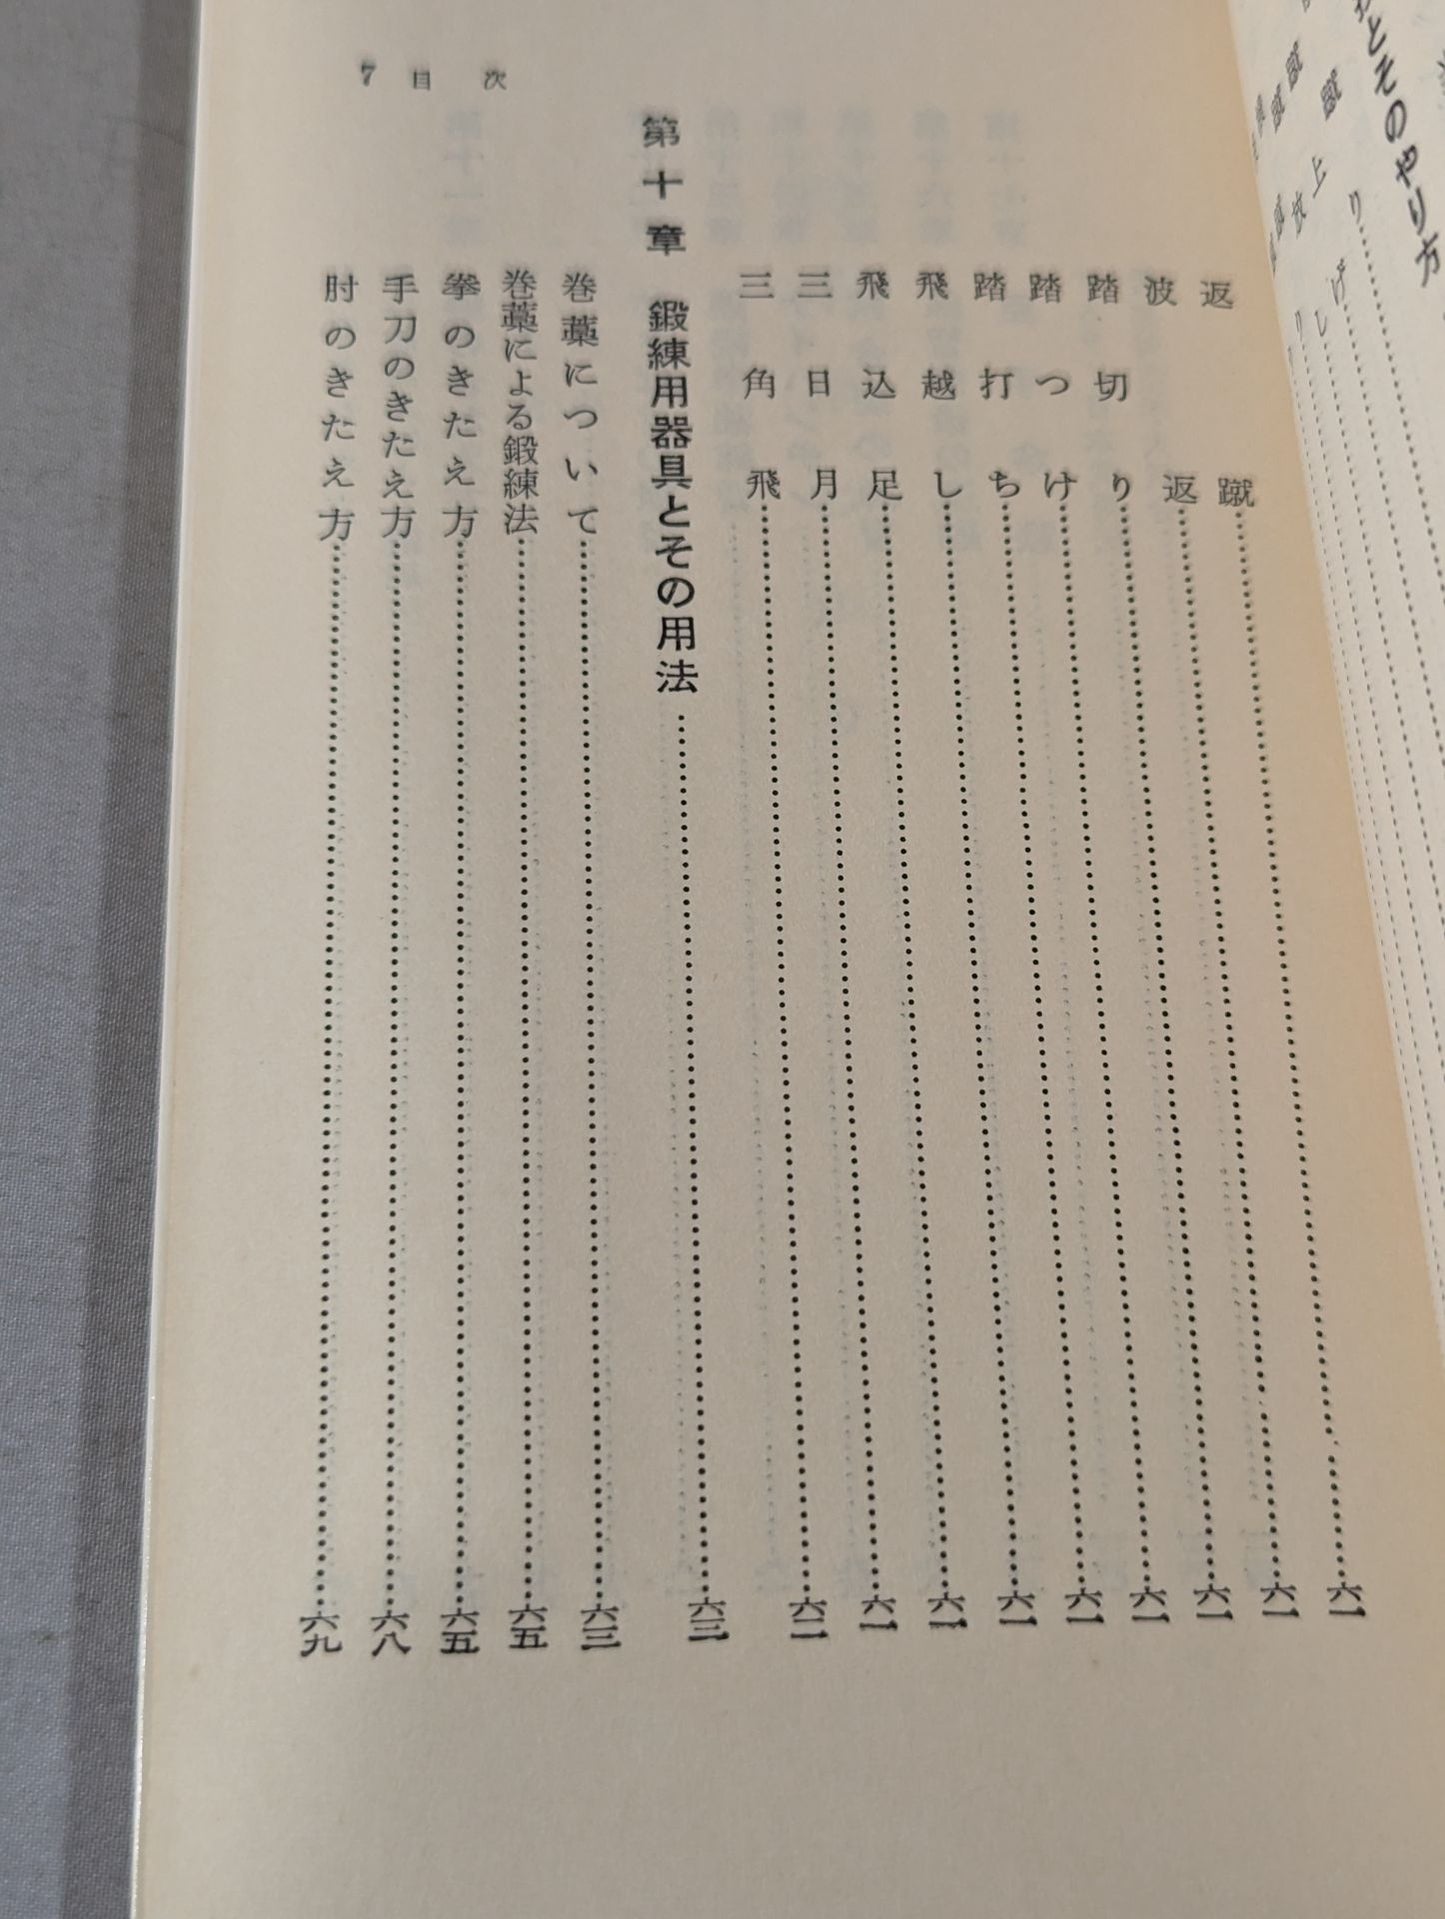 とそのやり方
7 目 次
返蹴……六一
波返……六一
踏切り……六一
踏つけ……六一
踏打ち……六一
飛越し……六一
飛込足……六一
三日月……六一
三角飛……六二
第十章 鍛練用器具とその用法……六三
巻藁について……六三
巻藁による鍛練法……六五
拳のきたえ方……六五
手刀のきたえ方……六八
肘のきたえ方……六九